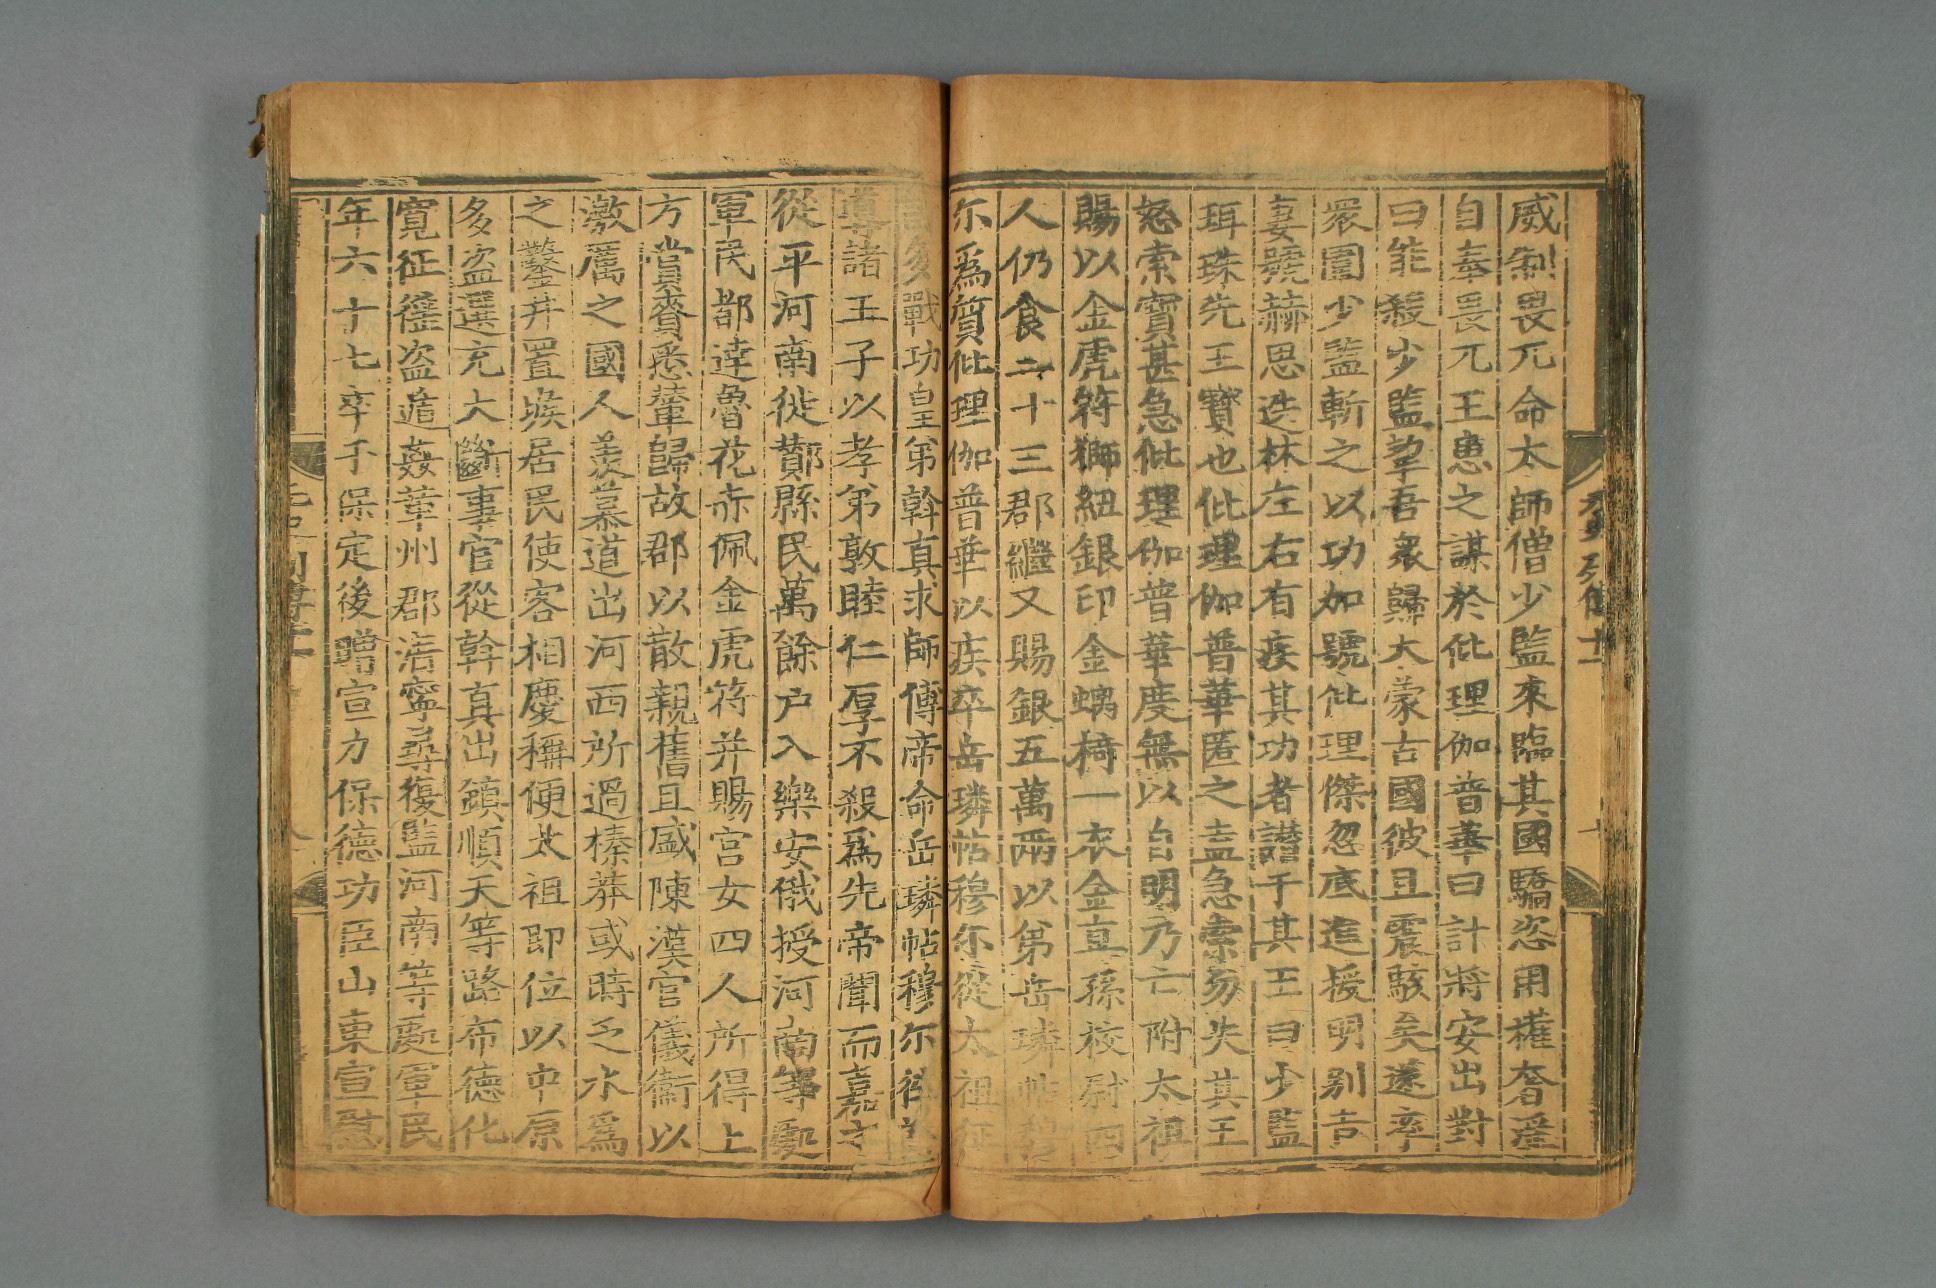 威制畏兀命太師僧少監來臨其國驕恣用權奢淫
自奉畏兀王患之謀於仳理伽普華曰計將安出對
曰能殺少監挈吾衆歸大蒙古國彼且震駭矣遂率
衆圍少監斬之以功加號仳理傑忽底進授明别吉
妻號赫思迭林左右有疾其功者譖于其王曰少監
珥珠先王寶也仳理伽普華匿之盍急索勿失其王
怒索寶甚急仳理伽普華度無以自明乃亡附太祖
賜以金虎符獅紐銀印金螭椅一衣金直孫校尉四
人仍食二十三郡繼又賜銀五萬兩以弟岳璘帖穆
尓爲質仳理伽普華以疾卒岳璘帖穆尓從太祖征
討多戰功皇弟斡真求師傅帝命岳璘帖穆尓
導諸王子以孝弟敦睦仁厚不殺爲先帝聞而嘉之
從平河南徙酇縣民萬餘户入樂安俄授河南等處
軍民都達魯花赤佩金虎符并賜宫女四人所得上
方賞賚悉輦歸故郡以散親舊且盛陳漢官儀衛以
激厲之國人羡慕道出河西所過榛莽或時乏水爲
之鑿井置堠居民使客相慶稱便太祖即位以中原
多盗選充大斷事官從斡真出鎮順天等路布德化
寛征徭盗遁姦革州郡清寧尋復監河南等處軍民
年六十七卒于保定後贈宣力保德功臣山東宣慰